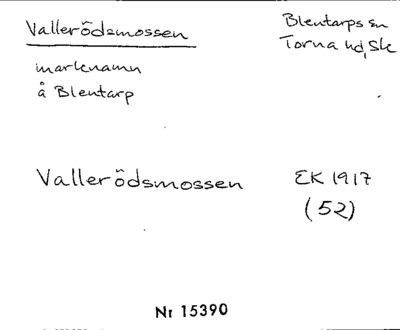 Vallerödsmossen
Blentarps sn
Torna hd, Sk
marknamn
å Blentarp
Vallerödsmossen
EK 1917
(52)
Nr 15390